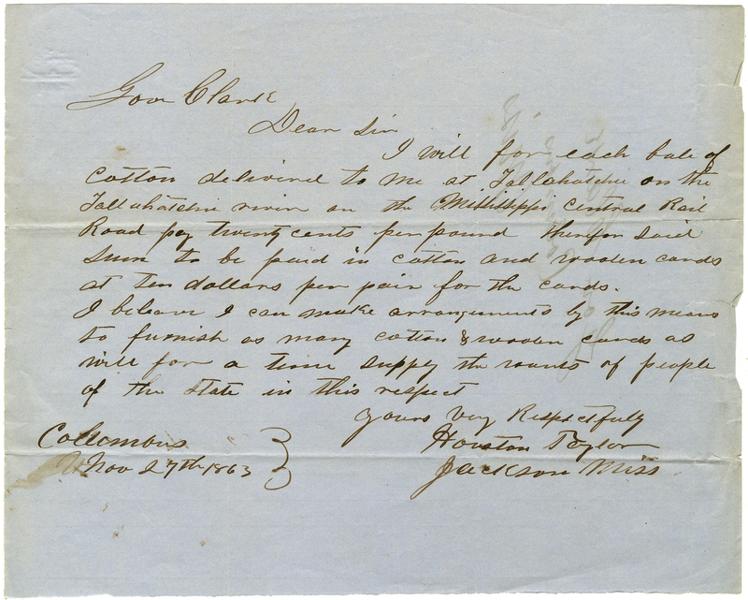 Gov Clark
Dear Sir
I will for each bale of
cotton delivered to me at Tallahatchie on the
Tallahatchie river on the Mississippi Central Rail
Road pay twenty cents per pound therefor said
sum to be paid in cotton and woolen cards
at ten dollars per pair for the cards.
I believe I can make arrangements by this means
to furnish as many cotton & woolen cards as
will for a time supply the wants of people
of the state in this respect
yours very Respectfully
Houston Taylor
Jackson Miss
Columbus
Nov 27th 1863